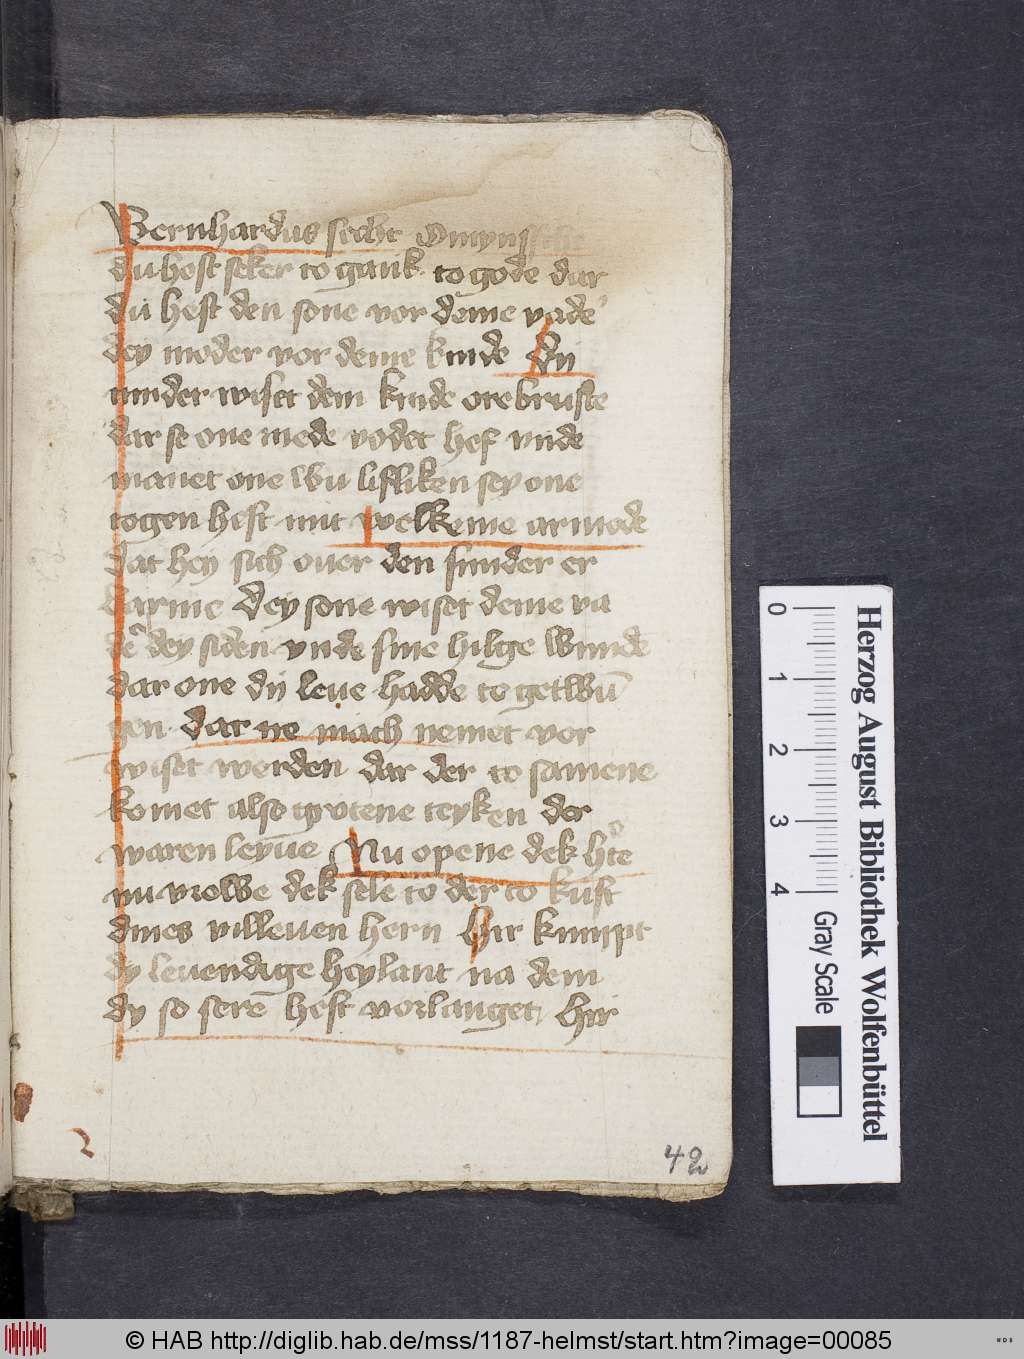 Bernhardus secht O mynsche
du hest seker to gank to gode dar
du hest den sone vor deme vade'
dey moder vor deme kinde Dij
muder wiset dem kinde ore bruste
dar se one mede vodet hef vnde
manet one wu lifliken sey one
togen heft mit welkeme armode
dat hey sich ouer den sunder er
barme Dey sone wiset deme va
de' dey siden vnde sine hilge wunde
dar one dij leue hadde to getwū
gen dar ne mach nemet vor
wiset werden dar der to samene
komet also grotene teyken der
waren leyue Nu opene dek h'te
nu vrowe dek sele to der to kūst
dines villeuen hern Hir kumpt
dy leuendige heylant na dem
dy so serē hest vorlanget Hir
42
Herzog August Bibliothek Wolfenbüttel
0 1 2 3 4
Gray Scale
© HAB http://diglib.hab.de/mss/1187-helmst/start.htm?image=00085